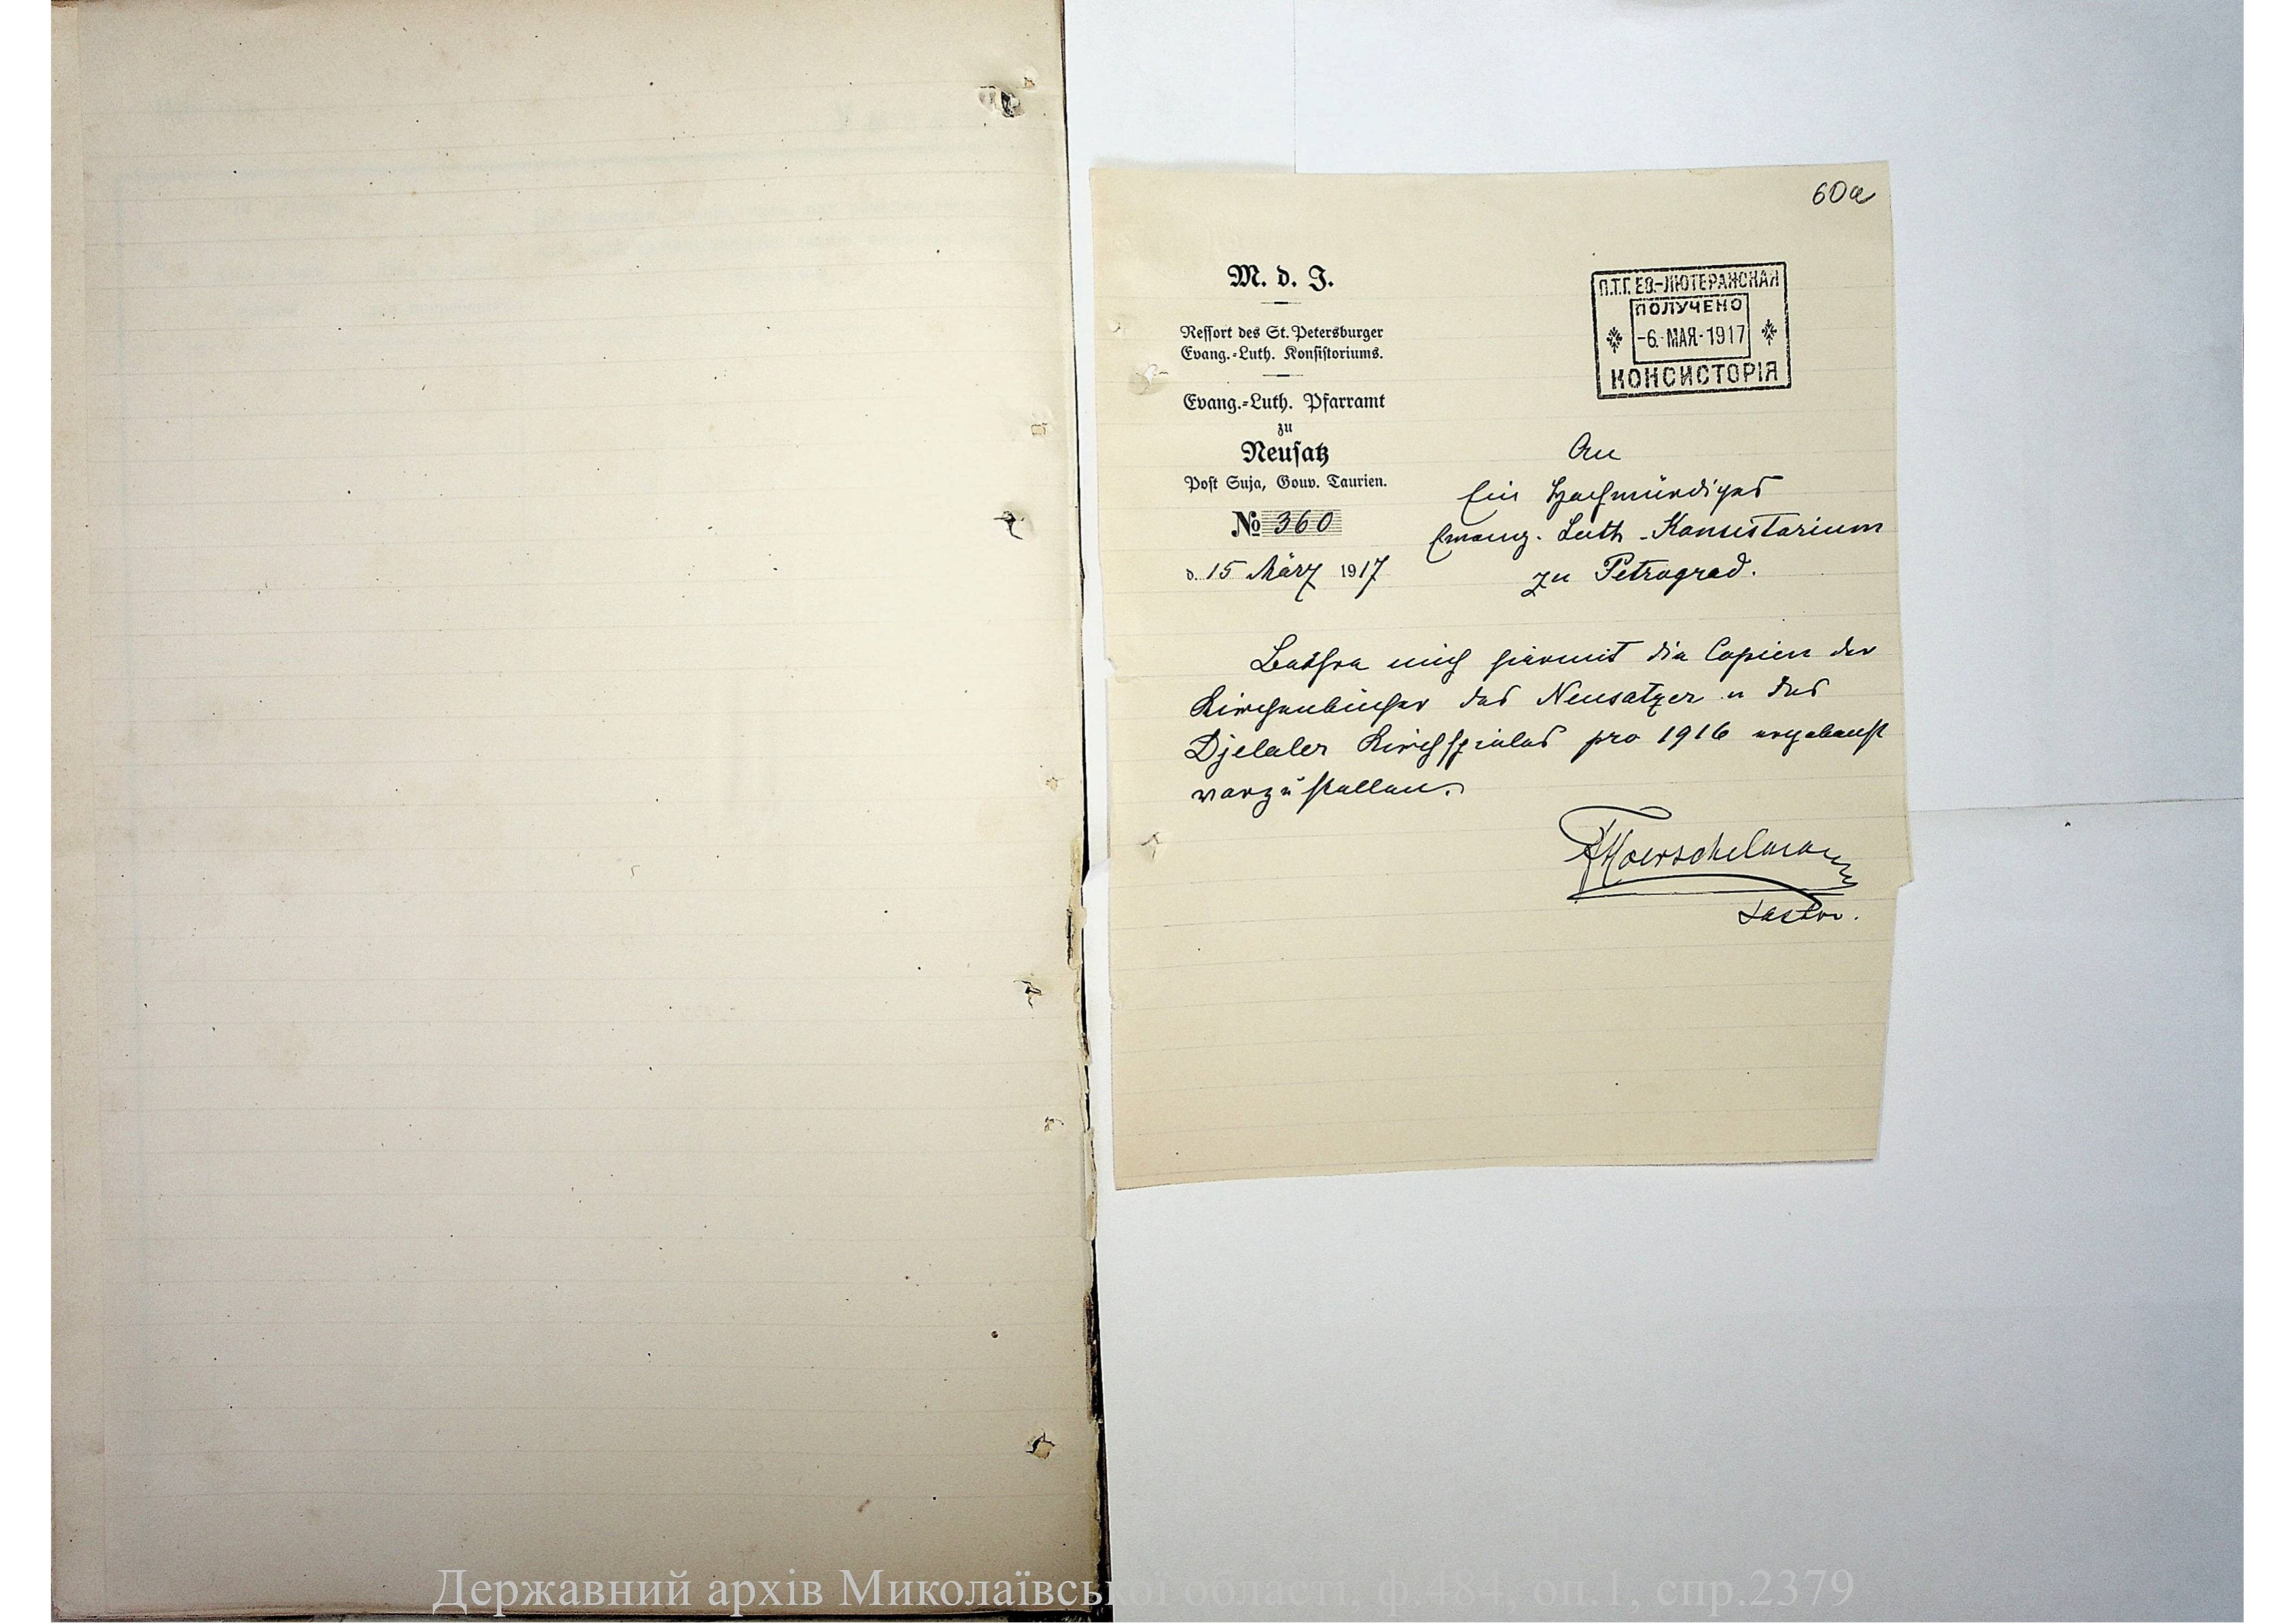 60a
M. d. J.
Ressort des St. Petersburger
Evang.-Luth. Konsistoriums.
Evang.-Luth. Pfarramt
zu
Neusatz
Post Suja, Gouv. Taurien.
№ 360
d. 15 März 1917
П.Т.Г. ЕВ.-ЛЮТЕРАНСКАЯ
ПОЛУЧЕНО
-6. МАЯ-1917
КОНСИСТОРІЯ
An
Ein Hochwürdiges
Evang. Luth. Konsistorium
zu Petrograd.
Beehre mich hiermit die Copien der
Kirchenbücher des Neusatzer u des
Djelaler Kirchspieles pro 1916 ergebenst
vorzustellen.
FHoerschelmann
Pastor.
Державний архів Миколаївської області, ф.484, оп.1, спр.2379